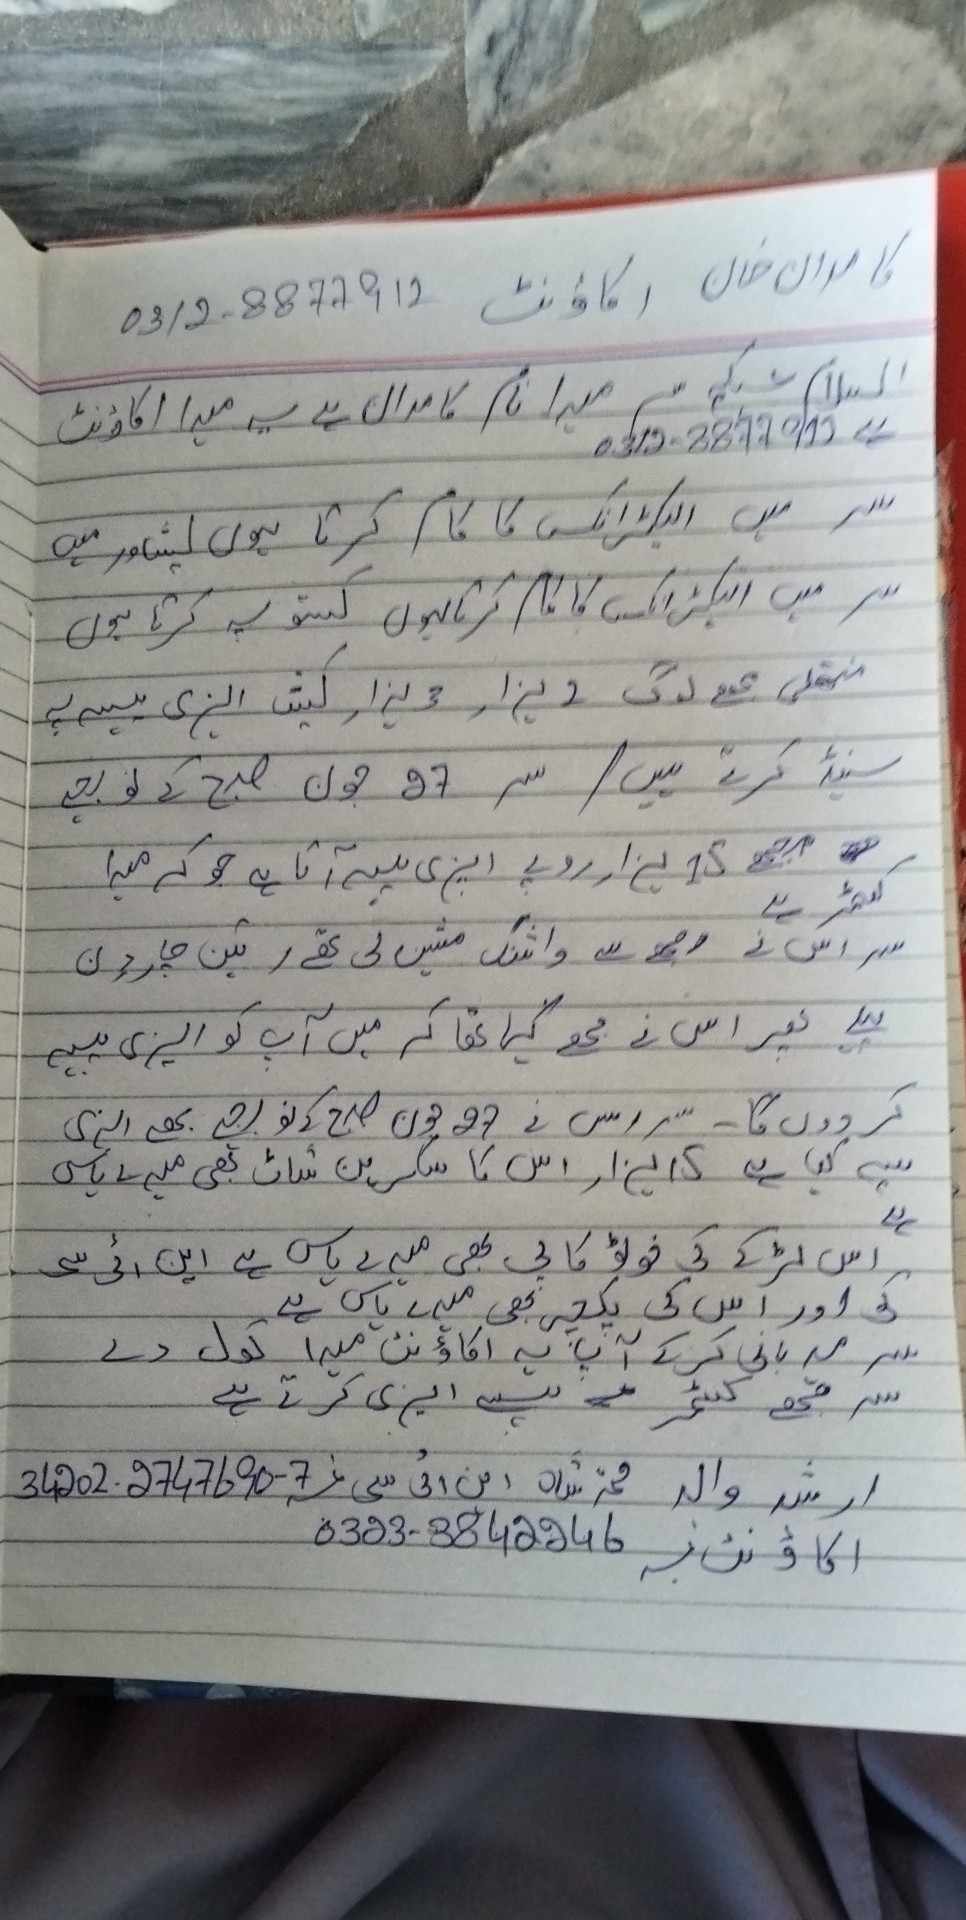 کامران خان اکاؤنٹ 0312-8877912
السلام علیکم سر میرا نام کامران ہے یہ میرا اکاؤنٹ
ہے 0312-8877912
سر میں الیکٹرانکس کا کام کرتا ہوں پشاور میں
سر میں الیکٹرانکس کا کام کرتا ہوں قسطو پہ کرتا ہوں
منتھلی مجھے لوگ 2 ہزار 3 ہزار کیش ایزی پیسہ پہ
سینڈ کرتے ہیں / سر 27 جون صبح کے نو بجے
مجھے 15 ہزار روپے ایزی پیسہ آتا ہے جو کہ میرا
کسٹمر ہے
سر اس نے مجھ سے واشنگ مشین لی تھے تین چار دن
پہلے پھر اس نے مجھے کہا تھا کہ میں آپ کو ایزی پیسہ
کر دوں گا۔ سر اس نے 27 جون صبح کے نو بجے مجھے ایزی
پیسہ کیا ہے 15 ہزار اس کا سکرین شاٹ بھی میرے پاس
ہے
اس لڑکے کی فوٹو کاپی بھی میرے پاس ہے این ائی سی
کی اور اس کی پکچر بھی میرے پاس ہے
سر مہربانی کرکے آپ یہ اکاؤنٹ میرا کول دے
سر مجھے کسٹمر پیسے ایزی کرتے ہے
ارشد والد محمد شاہ این ائی سی نمبر 34202-2747690-7
اکاؤنٹ نمبر 0323-3842246